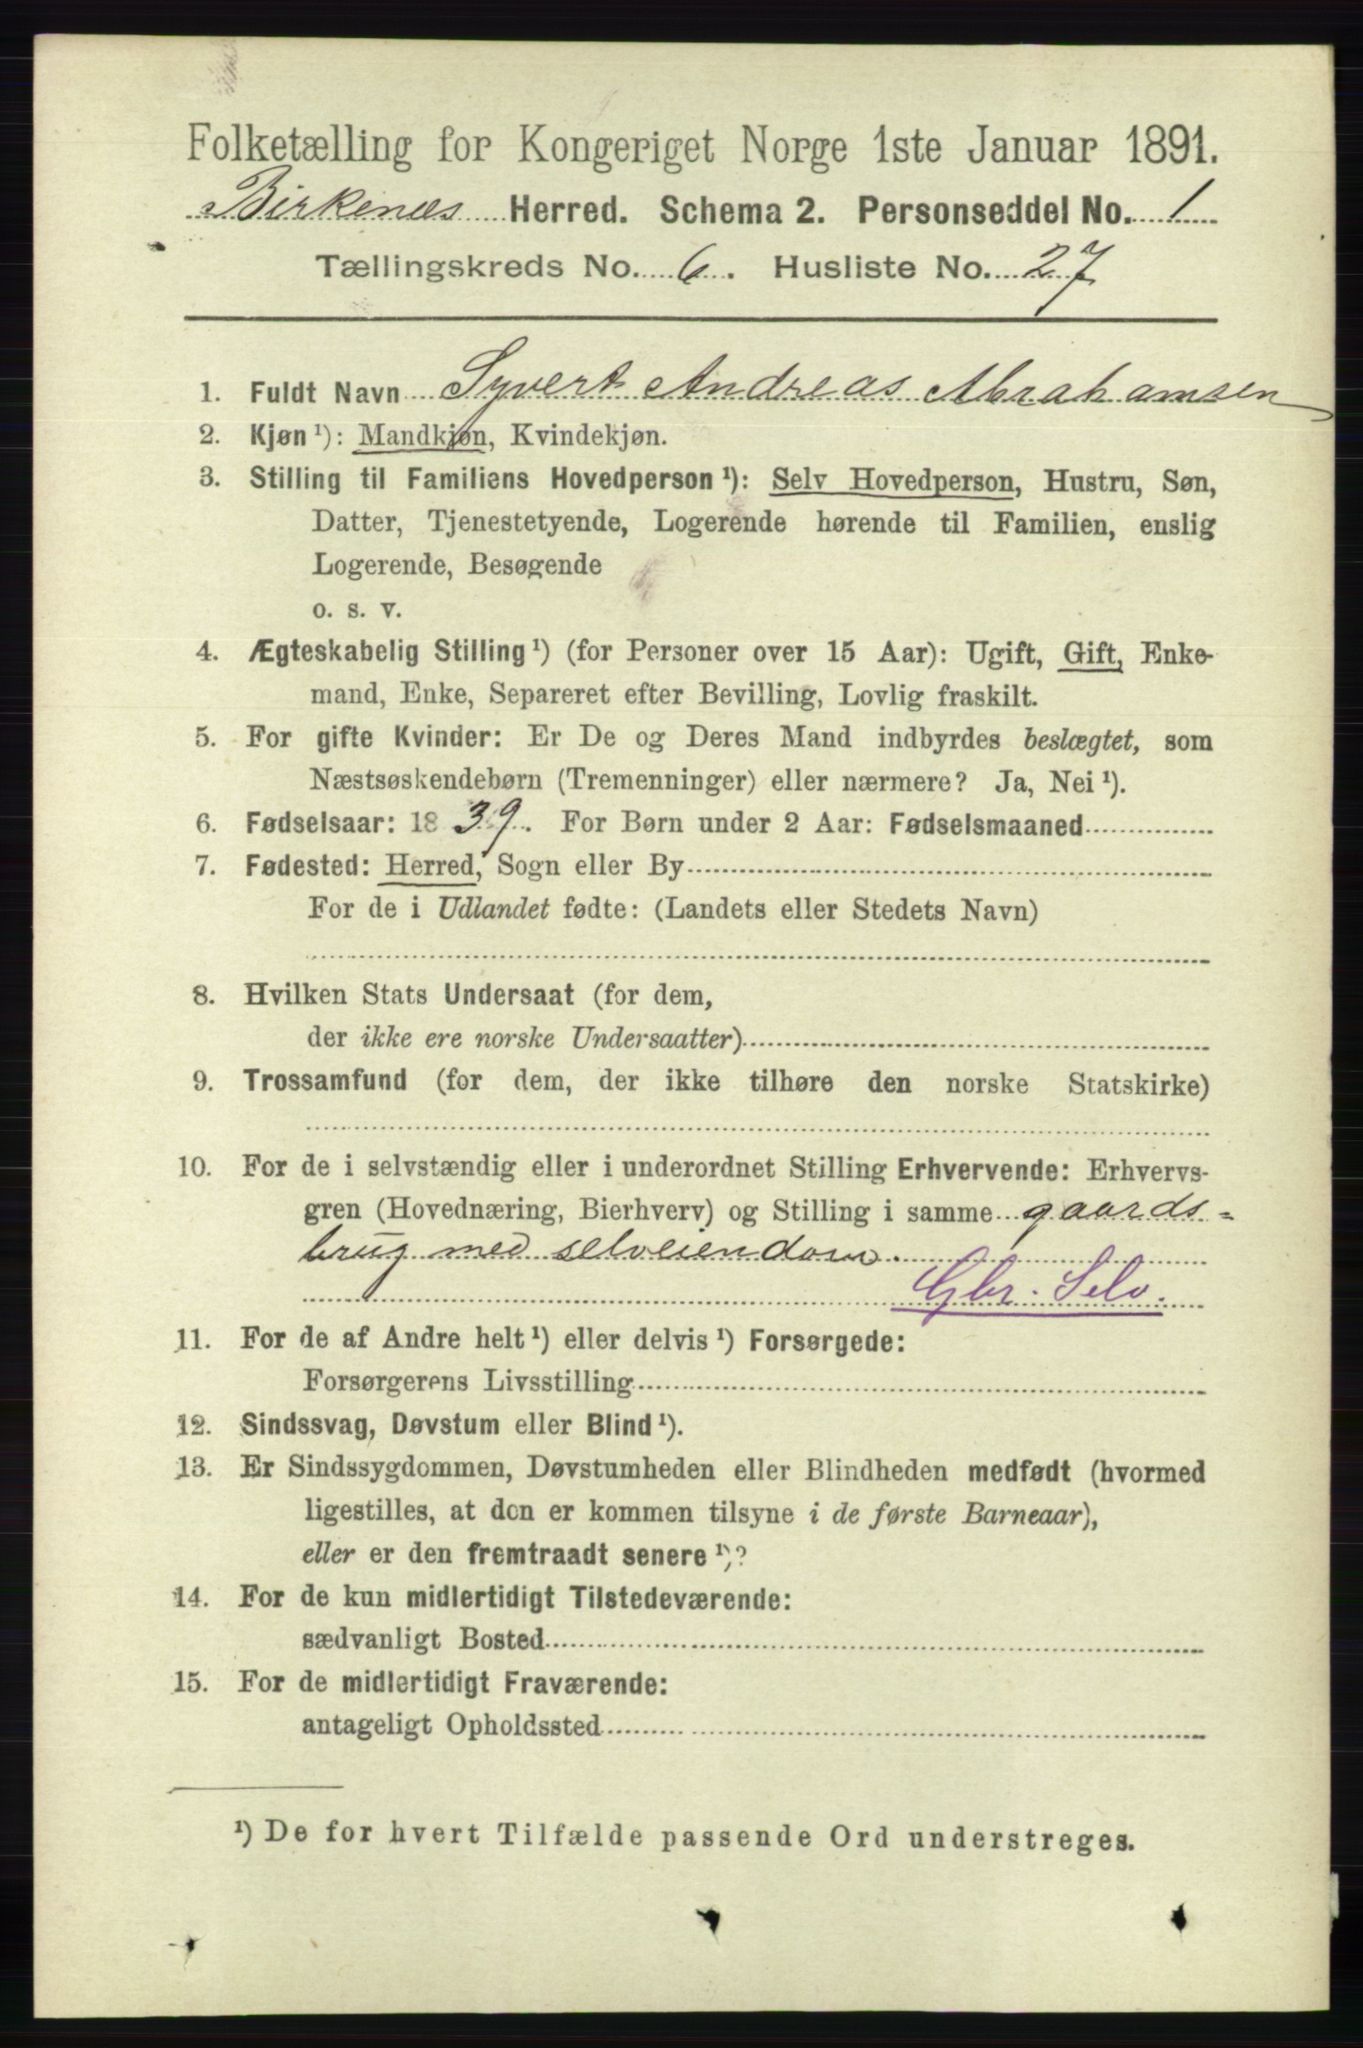 Folketælling for Kongeriget Norge 1ste Januar 1891.
Birkenæs Herred. Schema 2. Personseddel No. 1
Tællingskreds No. 6. Husliste No. 27
1. Fuldt Navn Syvert Andreas Abrahamsen
2. Kjøn ¹): Mandkjøn, Kvindekjøn.
3. Stilling til Familiens Hovedperson ¹): Selv Hovedperson, Hustru, Søn,
Datter, Tjenestetyende, Logerende hørende til Familien, enslig
Logerende, Besøgende
o. s. v.
4. Ægteskabelig Stilling ¹) (for Personer over 15 Aar): Ugift, Gift, Enke-
mand, Enke, Separeret efter Bevilling, Lovlig fraskilt.
5. For gifte Kvinder: Er De og Deres Mand indbyrdes beslægtet, som
Næstsøskendebørn (Tremenninger) eller nærmere? Ja, Nei ¹).
6. Fødselsaar: 1839. For Børn under 2 Aar: Fødselsmaaned
7. Fødested: Herred, Sogn eller By
For de i Udlandet fødte: (Landets eller Stedets Navn)
8. Hvilken Stats Undersaat (for dem,
der ikke ere norske Undersaatter)
9. Trossamfund (for dem, der ikke tilhøre den norske Statskirke)
10. For de i selvstændig eller i underordnet Stilling Erhvervende: Erhvervs-
gren (Hovednæring, Bierhverv) og Stilling i samme gaards-
brug med selveiendom.
Gbr. Selv.
11. For de af Andre helt ¹) eller delvis ¹) Forsørgede:
Forsørgerens Livsstilling
12. Sindssvag, Døvstum eller Blind ¹).
13. Er Sindssygdommen, Døvstumheden eller Blindheden medfødt (hvormed
ligestilles, at den er kommen tilsyne i de første Barneaar),
eller er den fremtraadt senere ¹)?
14. For de kun midlertidigt Tilstedeværende:
sædvanligt Bosted
15. For de midlertidigt Fraværende:
antageligt Opholdssted
¹) De for hvert Tilfælde passende Ord understreges.